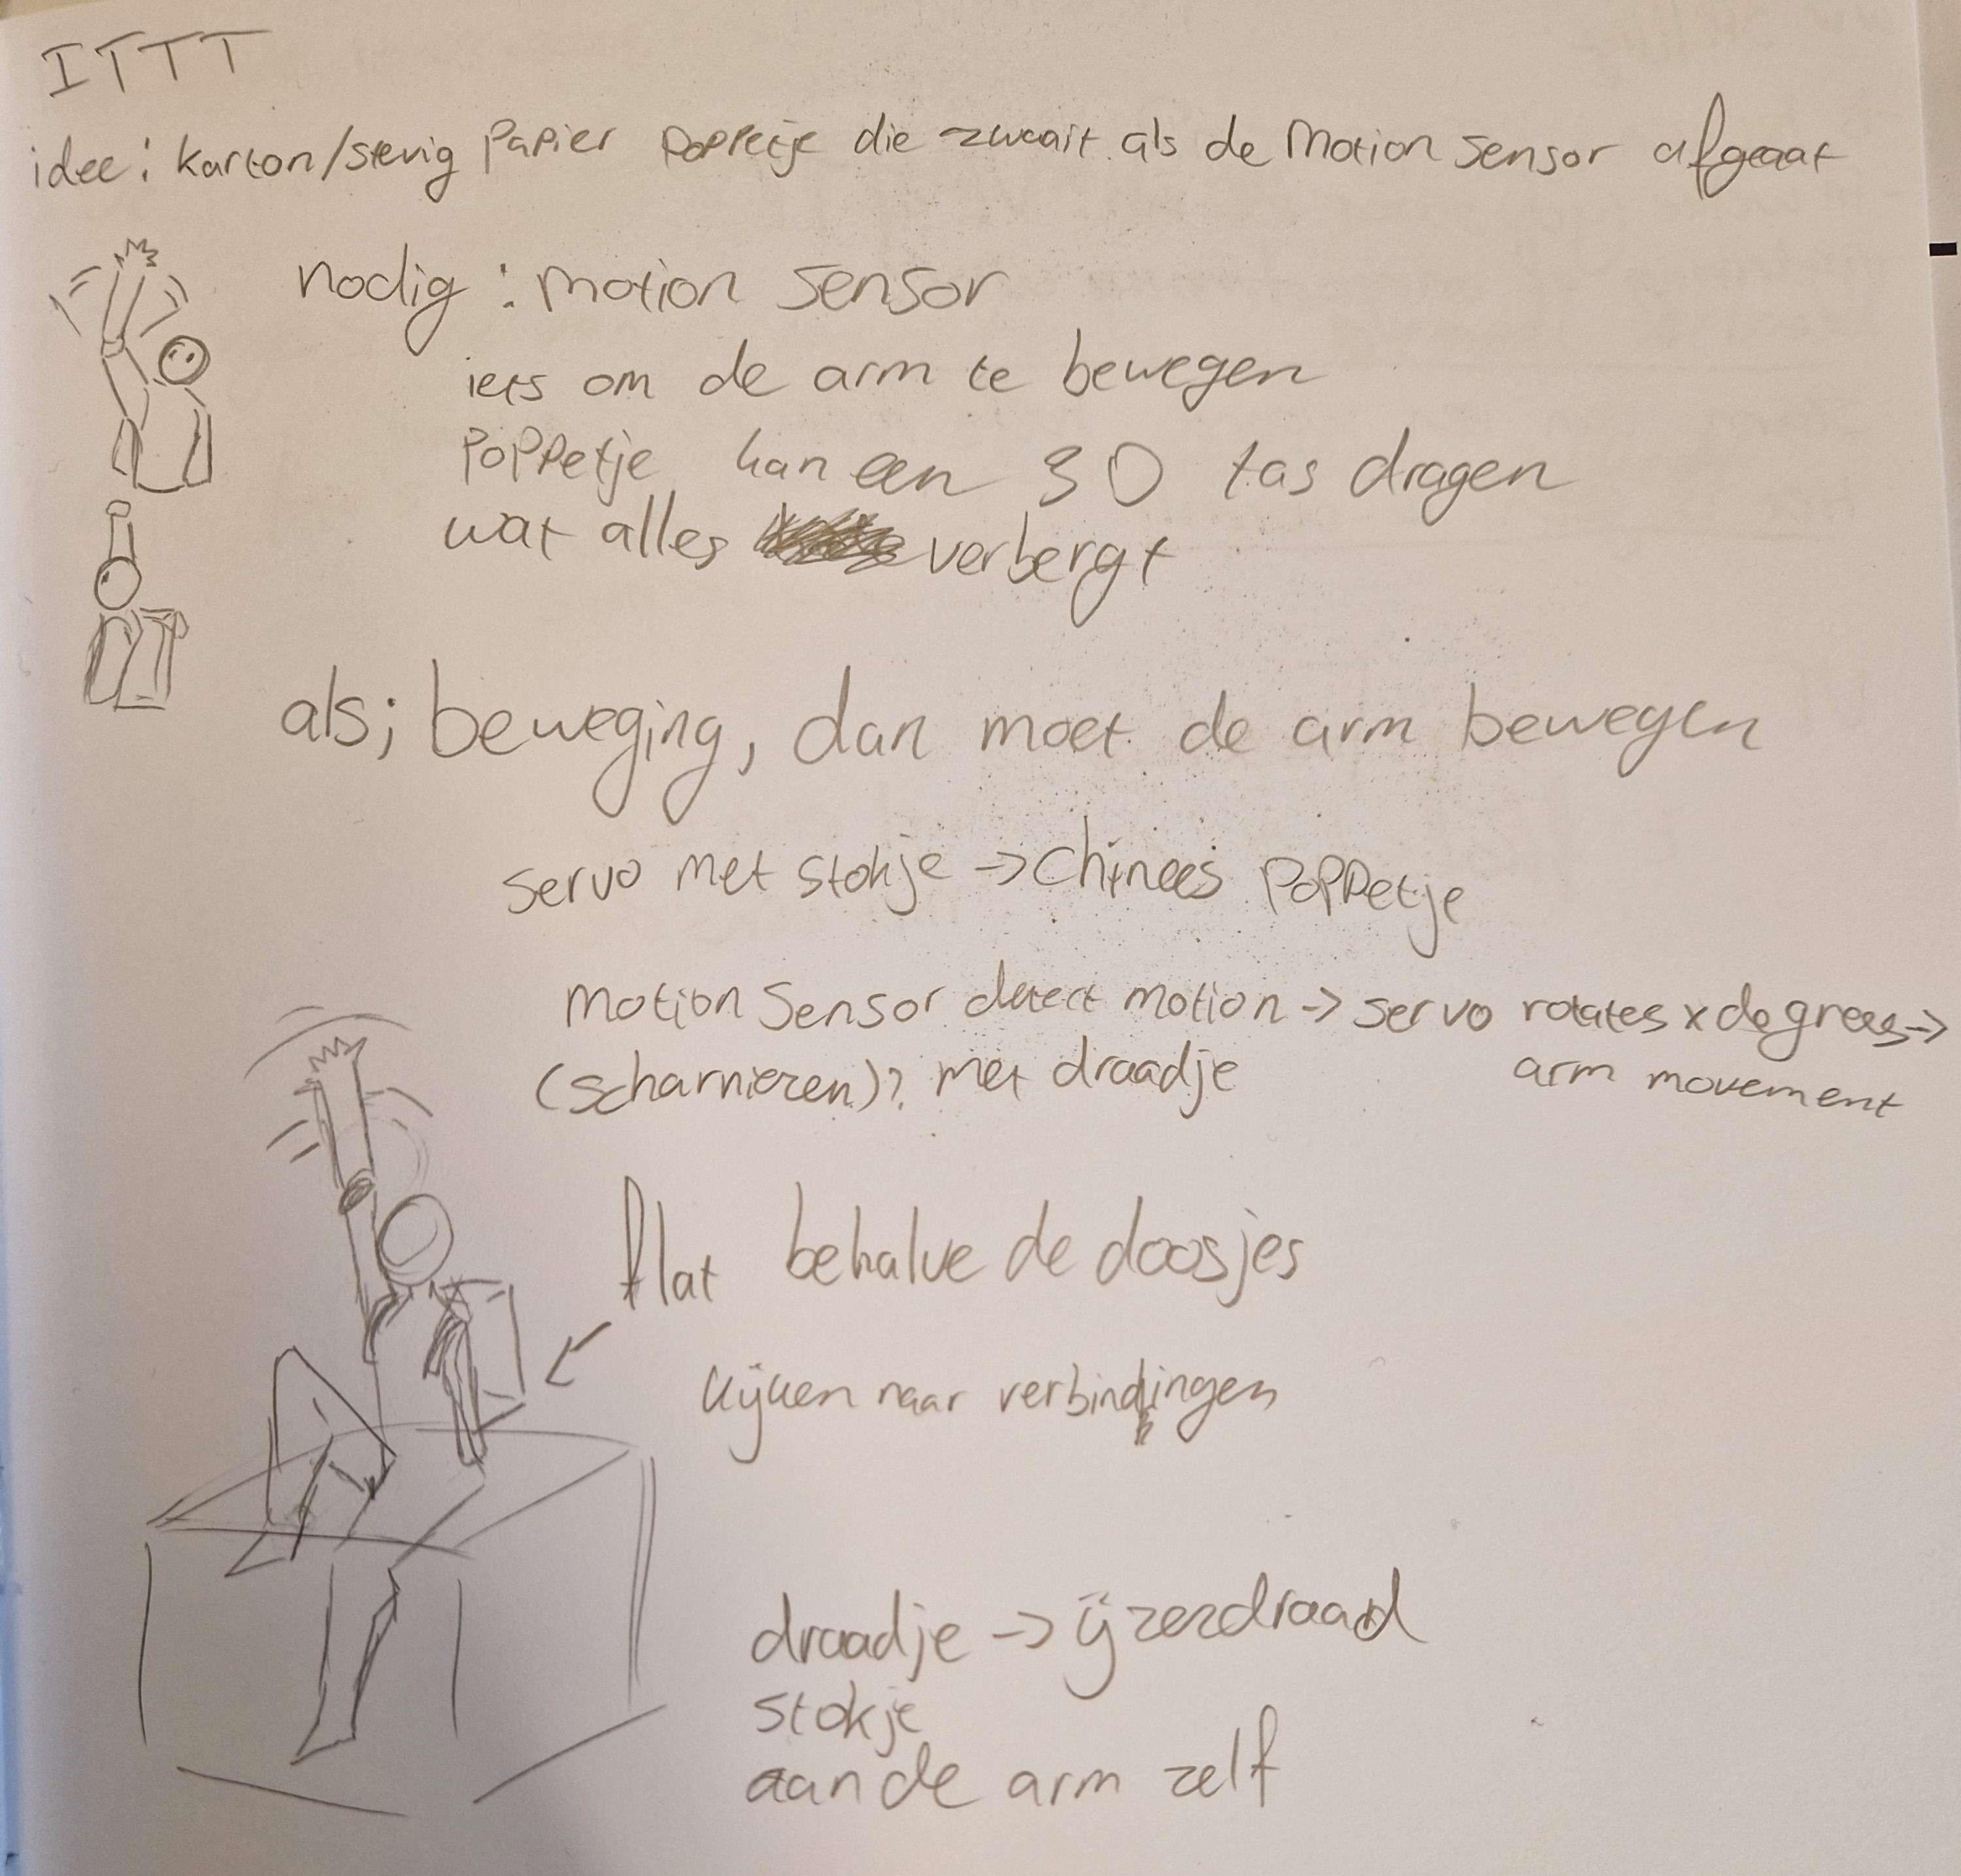 ITTT
idee: karton/stevig Papier poppetje die zwaait als de Motion Sensor afgaat
nodig: motion sensor
iets om de arm te bewegen
poppetje kan een 3D tas dragen
wat alles verbergt
als; beweging, dan moet de arm bewegen
servo met stokje -> Chinees poppetje
Motion Sensor detect motion -> servo rotates x degrees ->
(scharnieren)? met draadje arm movement
flat behalve de doosjes
kijken naar verbindingen
draadje -> ijzerdraad
stokje
aan de arm zelf